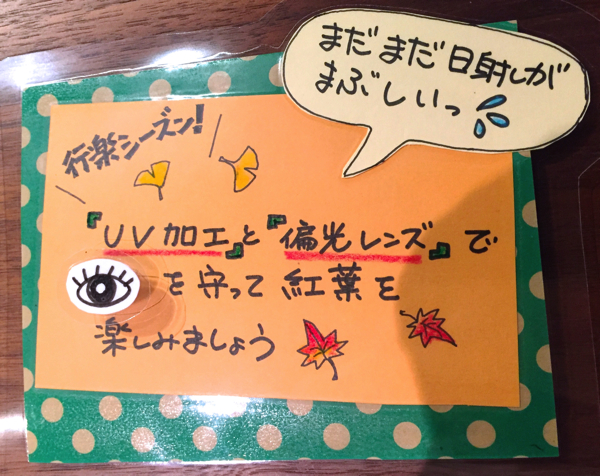 まだまだ日射しが
まぶしいっ
行楽シーズン!
『UV加工』と『偏光レンズ』で
を守って紅葉を
楽しみましょう